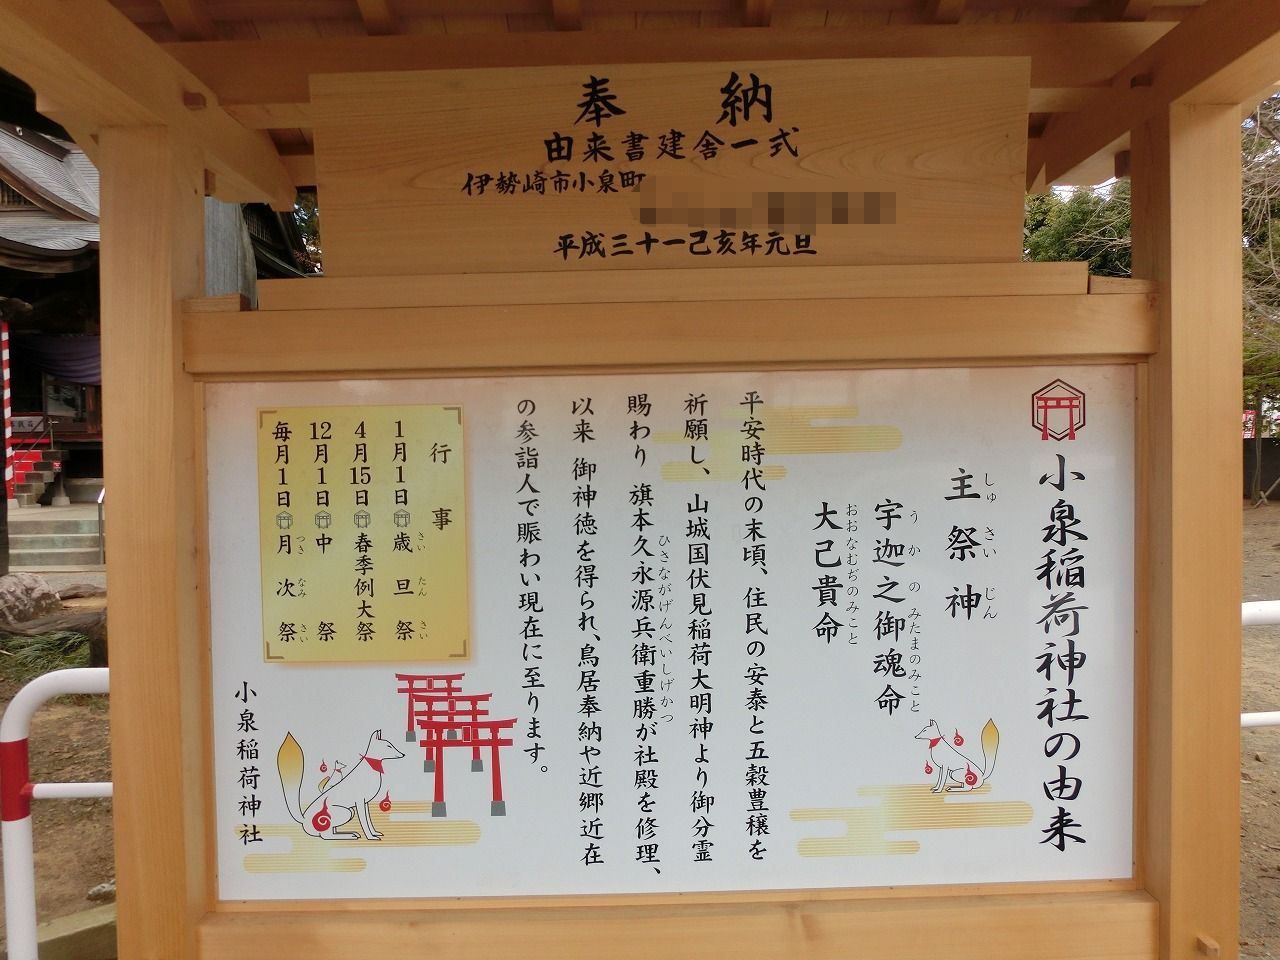 奉納
由来書建舎一式
伊勢崎市小泉町
平成三十一己亥年元旦
小泉稲荷神社の由来
主祭神
しゅさいじん
宇迦之御魂命
うかのみたまのみこと
大己貴命
おおなむぢのみこと
平安時代の末頃、住民の安泰と五穀豊穣を
祈願し、山城国伏見稲荷大明神より御分霊
賜わり 旗本久永源兵衛重勝が社殿を修理、
ひさながげんべいしげかつ
以来 御神徳を得られ、鳥居奉納や近郷近在
の参詣人で賑わい現在に至ります。
行事
1月1日 歳旦祭
さいたんさい
4月15日 春季例大祭
12月1日 中祭
毎月1日 月次祭
つきなみさい
小泉稲荷神社